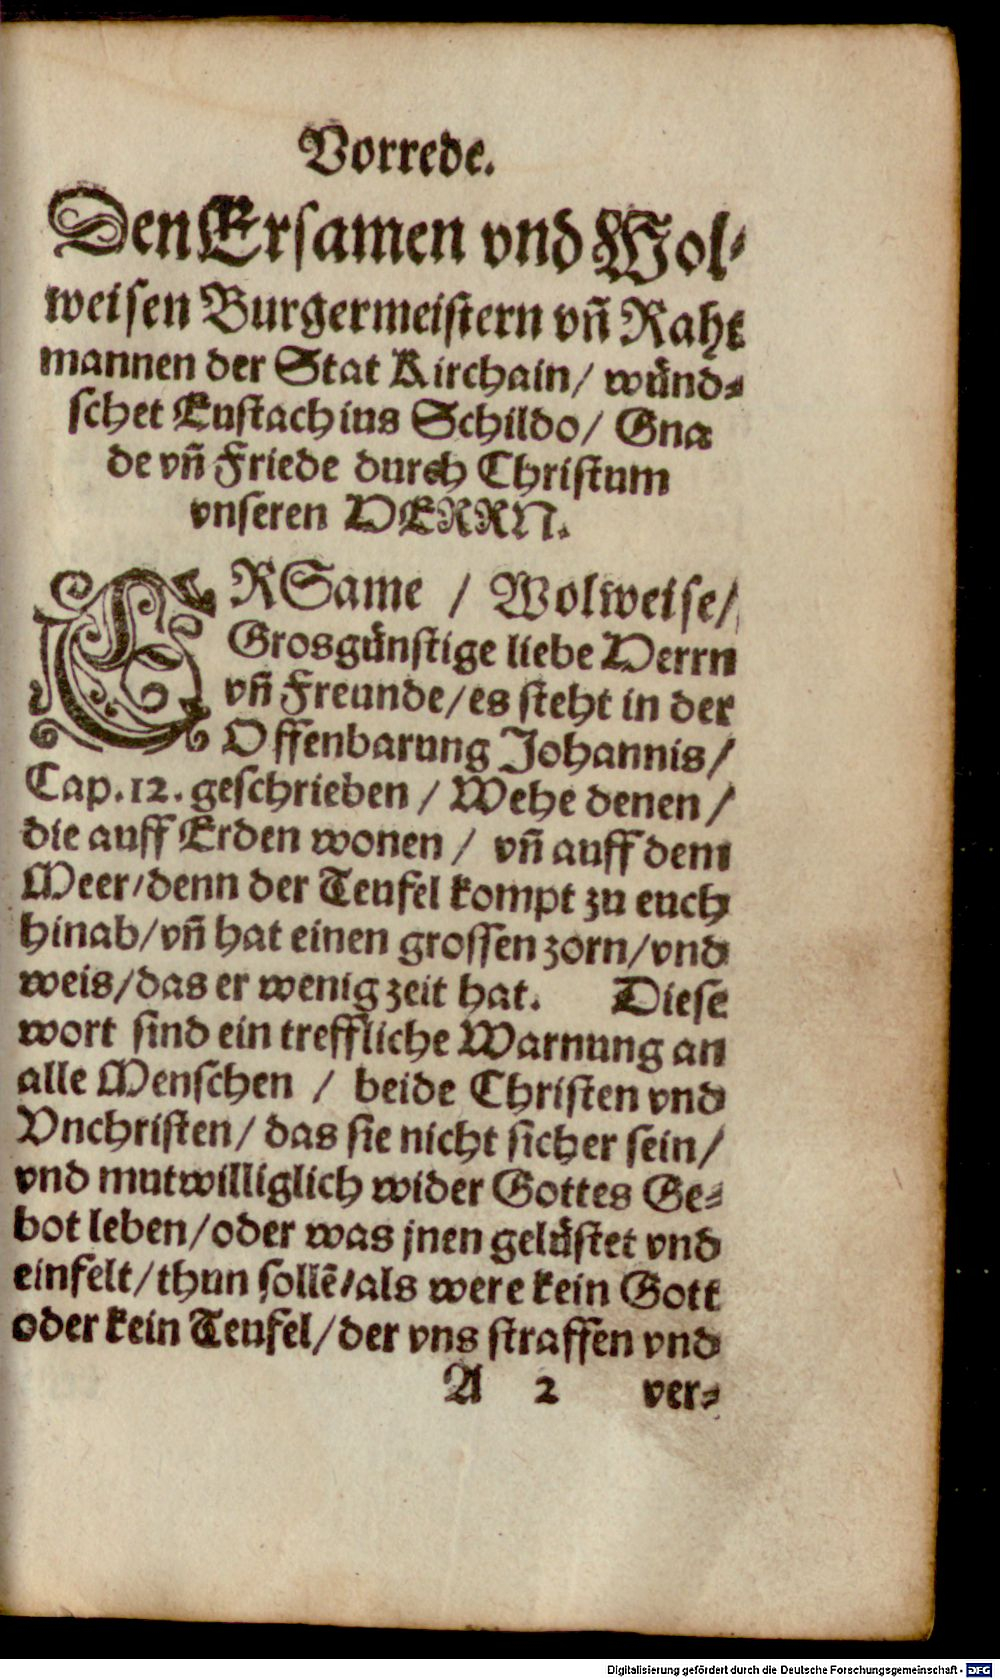 Vorrede.
Den Ersamen vnd Wol-
weisen Burgermeistern vñ Raht
mannen der Stat Kirchain/ wünd-
schet Eustachius Schildo/ Gna
de vñ Friede durch Christum
vnseren HERRN.
ERSame / Wolweise/
Grosgünstige liebe Herrn
vñ Freunde/es steht in der
Offenbarung Johannis/
Cap.12. geschrieben / Wehe denen /
die auff Erden wonen / vñ auff dem
Meer/denn der Teufel kompt zu euch
hinab/vñ hat einen grossen zorn/vnd
weis/das er wenig zeit hat. Diese
wort sind ein treffliche Warnung an
alle Menschen / beide Christen vnd
Vnchristen/ das sie nicht sicher sein/
vnd mutwilliglich wider Gottes Ge-
bot leben/oder was jnen gelüstet vnd
einfelt/thun sollẽ/als were kein Gott
oder kein Teufel/der vns straffen vnd
A 2 ver-
Digitalisierung gefördert durch die Deutsche Forschungsgemeinschaft - DFG